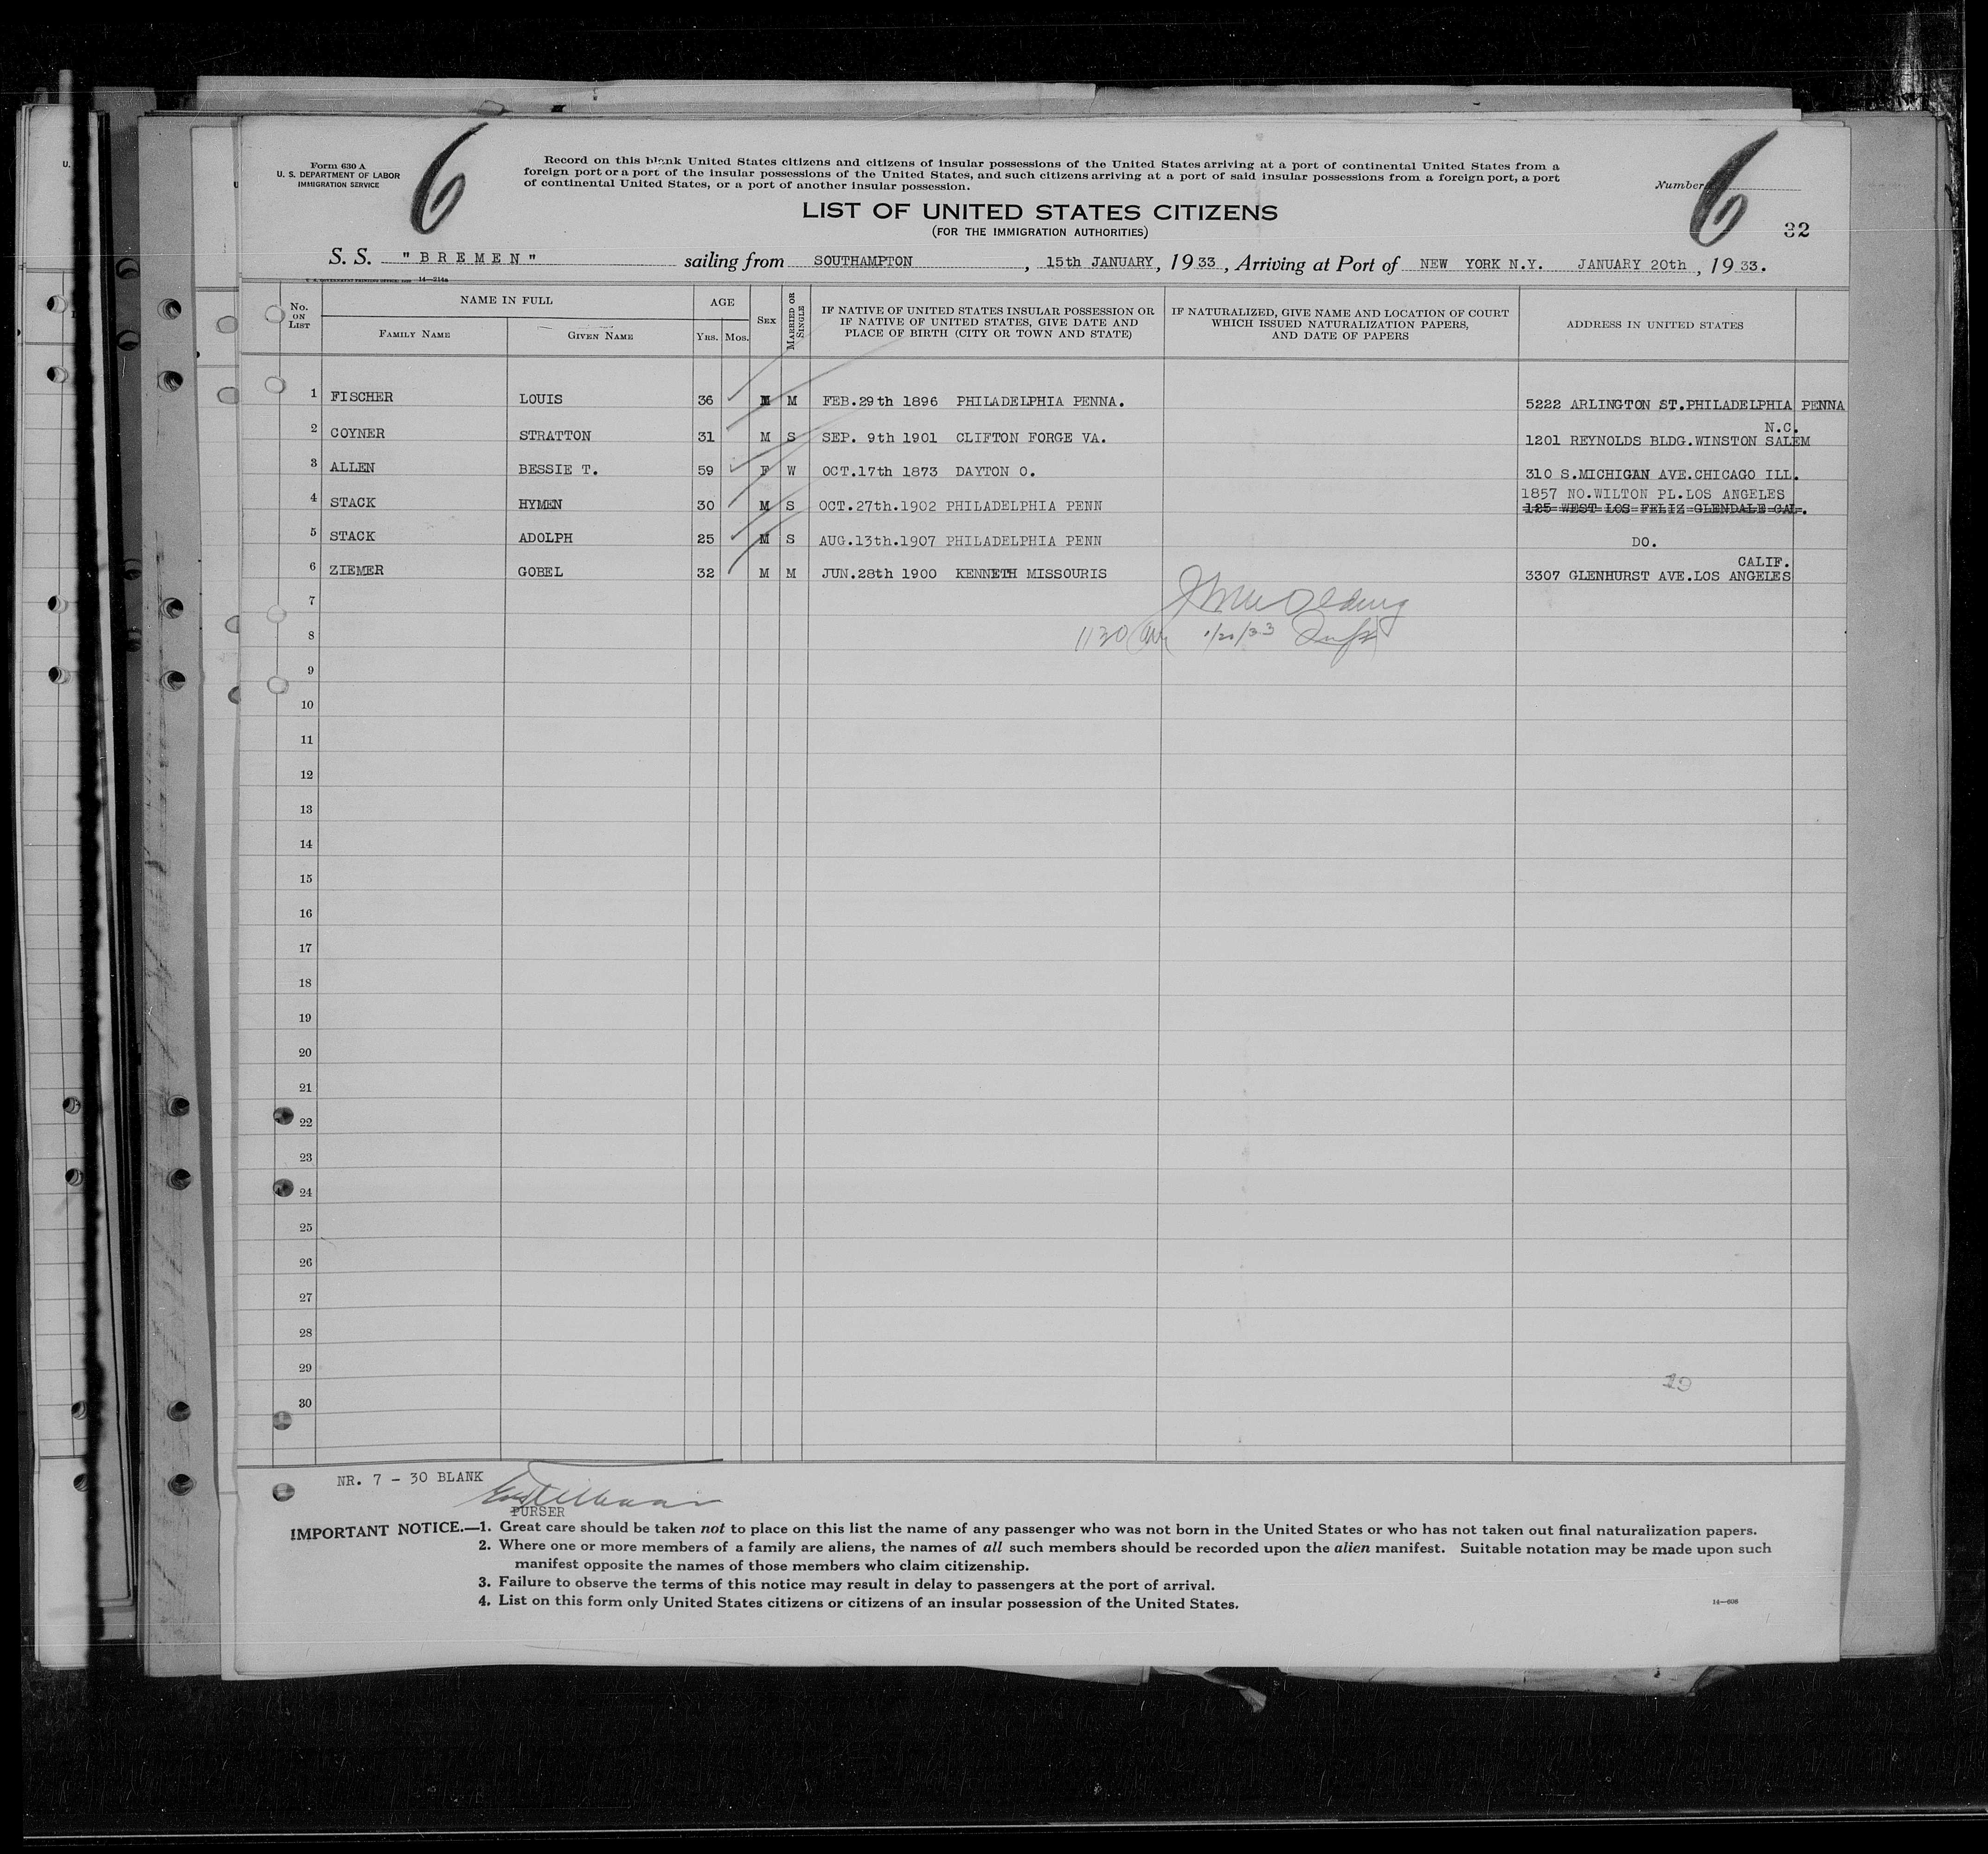 Form 630 A
U. S. DEPARTMENT OF LABOR
IMMIGRATION SERVICE
6
Record on this blank United States citizens and citizens of insular possessions of the United States arriving at a port of continental United States from a
foreign port or a port of the insular possessions of the United States, and such citizens arriving at a port of said insular possessions from a foreign port, a port
of continental United States, or a port of another insular possession.
Number
6
32
LIST OF UNITED STATES CITIZENS
(FOR THE IMMIGRATION AUTHORITIES)
S. S. "BREMEN" sailing from SOUTHAMPTON, 15th JANUARY, 1933, Arriving at Port of NEW YORK N.Y. JANUARY 20th, 1933.
No. ON LIST
NAME IN FULL
FAMILY NAME
GIVEN NAME
AGE
YRS. MOS.
SEX
MARRIED OR SINGLE
IF NATIVE OF UNITED STATES INSULAR POSSESSION OR
IF NATIVE OF UNITED STATES, GIVE DATE AND
PLACE OF BIRTH (CITY OR TOWN AND STATE)
IF NATURALIZED, GIVE NAME AND LOCATION OF COURT
WHICH ISSUED NATURALIZATION PAPERS,
AND DATE OF PAPERS
ADDRESS IN UNITED STATES
1 FISCHER LOUIS 36 M M FEB.29th 1896 PHILADELPHIA PENNA. 5222 ARLINGTON ST.PHILADELPHIA PENNA
N.C.
2 COYNER STRATTON 31 M S SEP. 9th 1901 CLIFTON FORGE VA. 1201 REYNOLDS BLDG.WINSTON SALEM
3 ALLEN BESSIE T. 59 F W OCT.17th 1873 DAYTON O. 310 S.MICHIGAN AVE.CHICAGO ILL.
1857 NO.WILTON PL.LOS ANGELES
4 STACK HYMEN 30 M S OCT.27th.1902 PHILADELPHIA PENN 125 WEST LOS FELIZ GLENDALE CAL.
5 STACK ADOLPH 25 M S AUG.13th.1907 PHILADELPHIA PENN DO.
CALIF.
6 ZIEMER GOBEL 32 M M JUN.28th 1900 KENNETH MISSOURIS 3307 GLENHURST AVE.LOS ANGELES
7
1130 AM 1/20/33 Insp
8
9
10
11
12
13
14
15
16
17
18
19
20
21
22
23
24
25
26
27
28
29
19
30
NR. 7 - 30 BLANK
PURSER
IMPORTANT NOTICE.—1. Great care should be taken not to place on this list the name of any passenger who was not born in the United States or who has not taken out final naturalization papers.
2. Where one or more members of a family are aliens, the names of all such members should be recorded upon the alien manifest. Suitable notation may be made upon such
manifest opposite the names of those members who claim citizenship.
3. Failure to observe the terms of this notice may result in delay to passengers at the port of arrival.
4. List on this form only United States citizens or citizens of an insular possession of the United States.
14—608